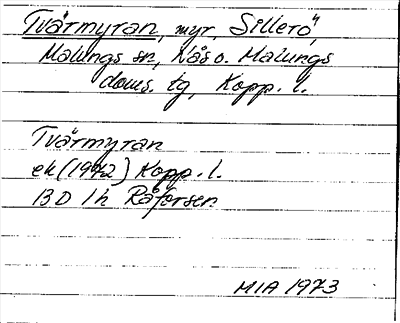 Tvärmyran, myr, Sillerö,
Malungs sn, Nås o. Malungs
doms. tg, Kopp. l.
Tvärmyran
ek (1972) Kopp. l.
13D 1h Råforsen
MIA 1973